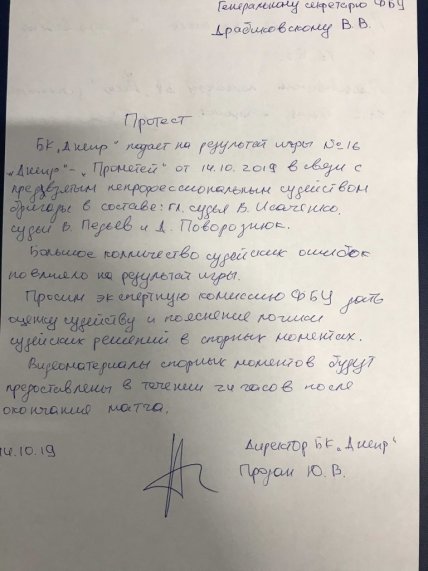 Генеральному секретарю ФБУ
Драбиковскому В. В.
Протест
БК „Днепр“ подает на результат игры № 16
„Днепр“ - „Прометей“ от 14.10.2019 в связи с
предвзятым непрофессиональным судейством
бригады в составе: гл. судья В. Исаченко,
судьи В. и А. Поворознюк.
Большое количество судейских ошибок
повлияло на результат игры.
Просим экспертную комиссию ФБУ дать
оценку судейству и пояснение логики
судейских решений в спорных моментах.
Видеоматериалы спорных моментов будут
предоставлены в течении 24 часов после
окончания матча.
14.10.19
Директор БК „Днепр“
Ю. В.